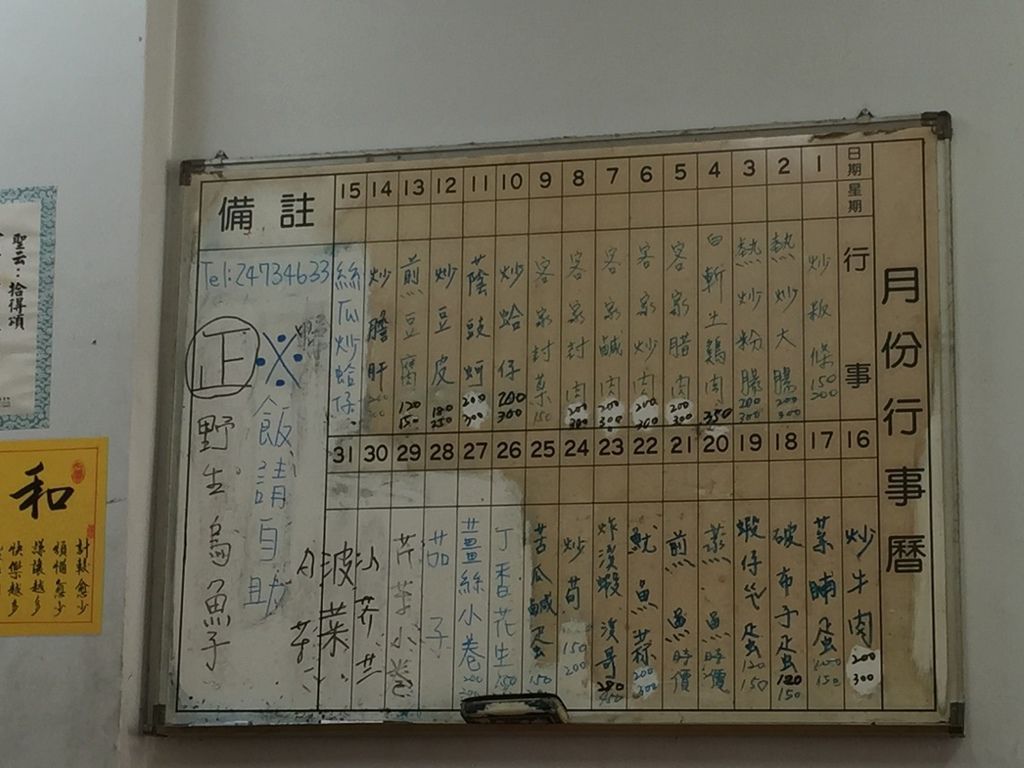 月份行事曆
日期
星期
行事
1
2
3
4
5
6
7
8
9
10
11
12
13
14
15
炒粄條 150 200
熱炒大腸 200 300
熱炒粉腸 200 300
白斬土鷄肉 350
客家腊肉 200 300
客家炒肉 200 300
客家鹹肉 200 300
客家封肉 200 300
客家封菜 150
炒蛤仔 200 300
蔭豉蚵 200 300
炒豆皮
煎豆腐 120 150
炒膽肝
絲瓜炒蛤仔
16
17
18
19
20
21
22
23
24
25
26
27
28
29
30
31
炒牛肉 200 300
菜脯蛋 150
破布子蛋 120 150
蝦仔蛋 120 150
蒸魚時價
煎魚時價
魷魚蒜 200 300
炸溪蝦溪哥
炒筍 150 200
苦瓜鹹蛋 150
丁香花生 150
薑絲小卷
茄子
芹菜小卷
波菜
備註
Tel:24734633
※飯請自助
正野生烏魚子
聖云：拾得項
和
計較愈少
煩惱愈少
嫌讓越多
快樂越多